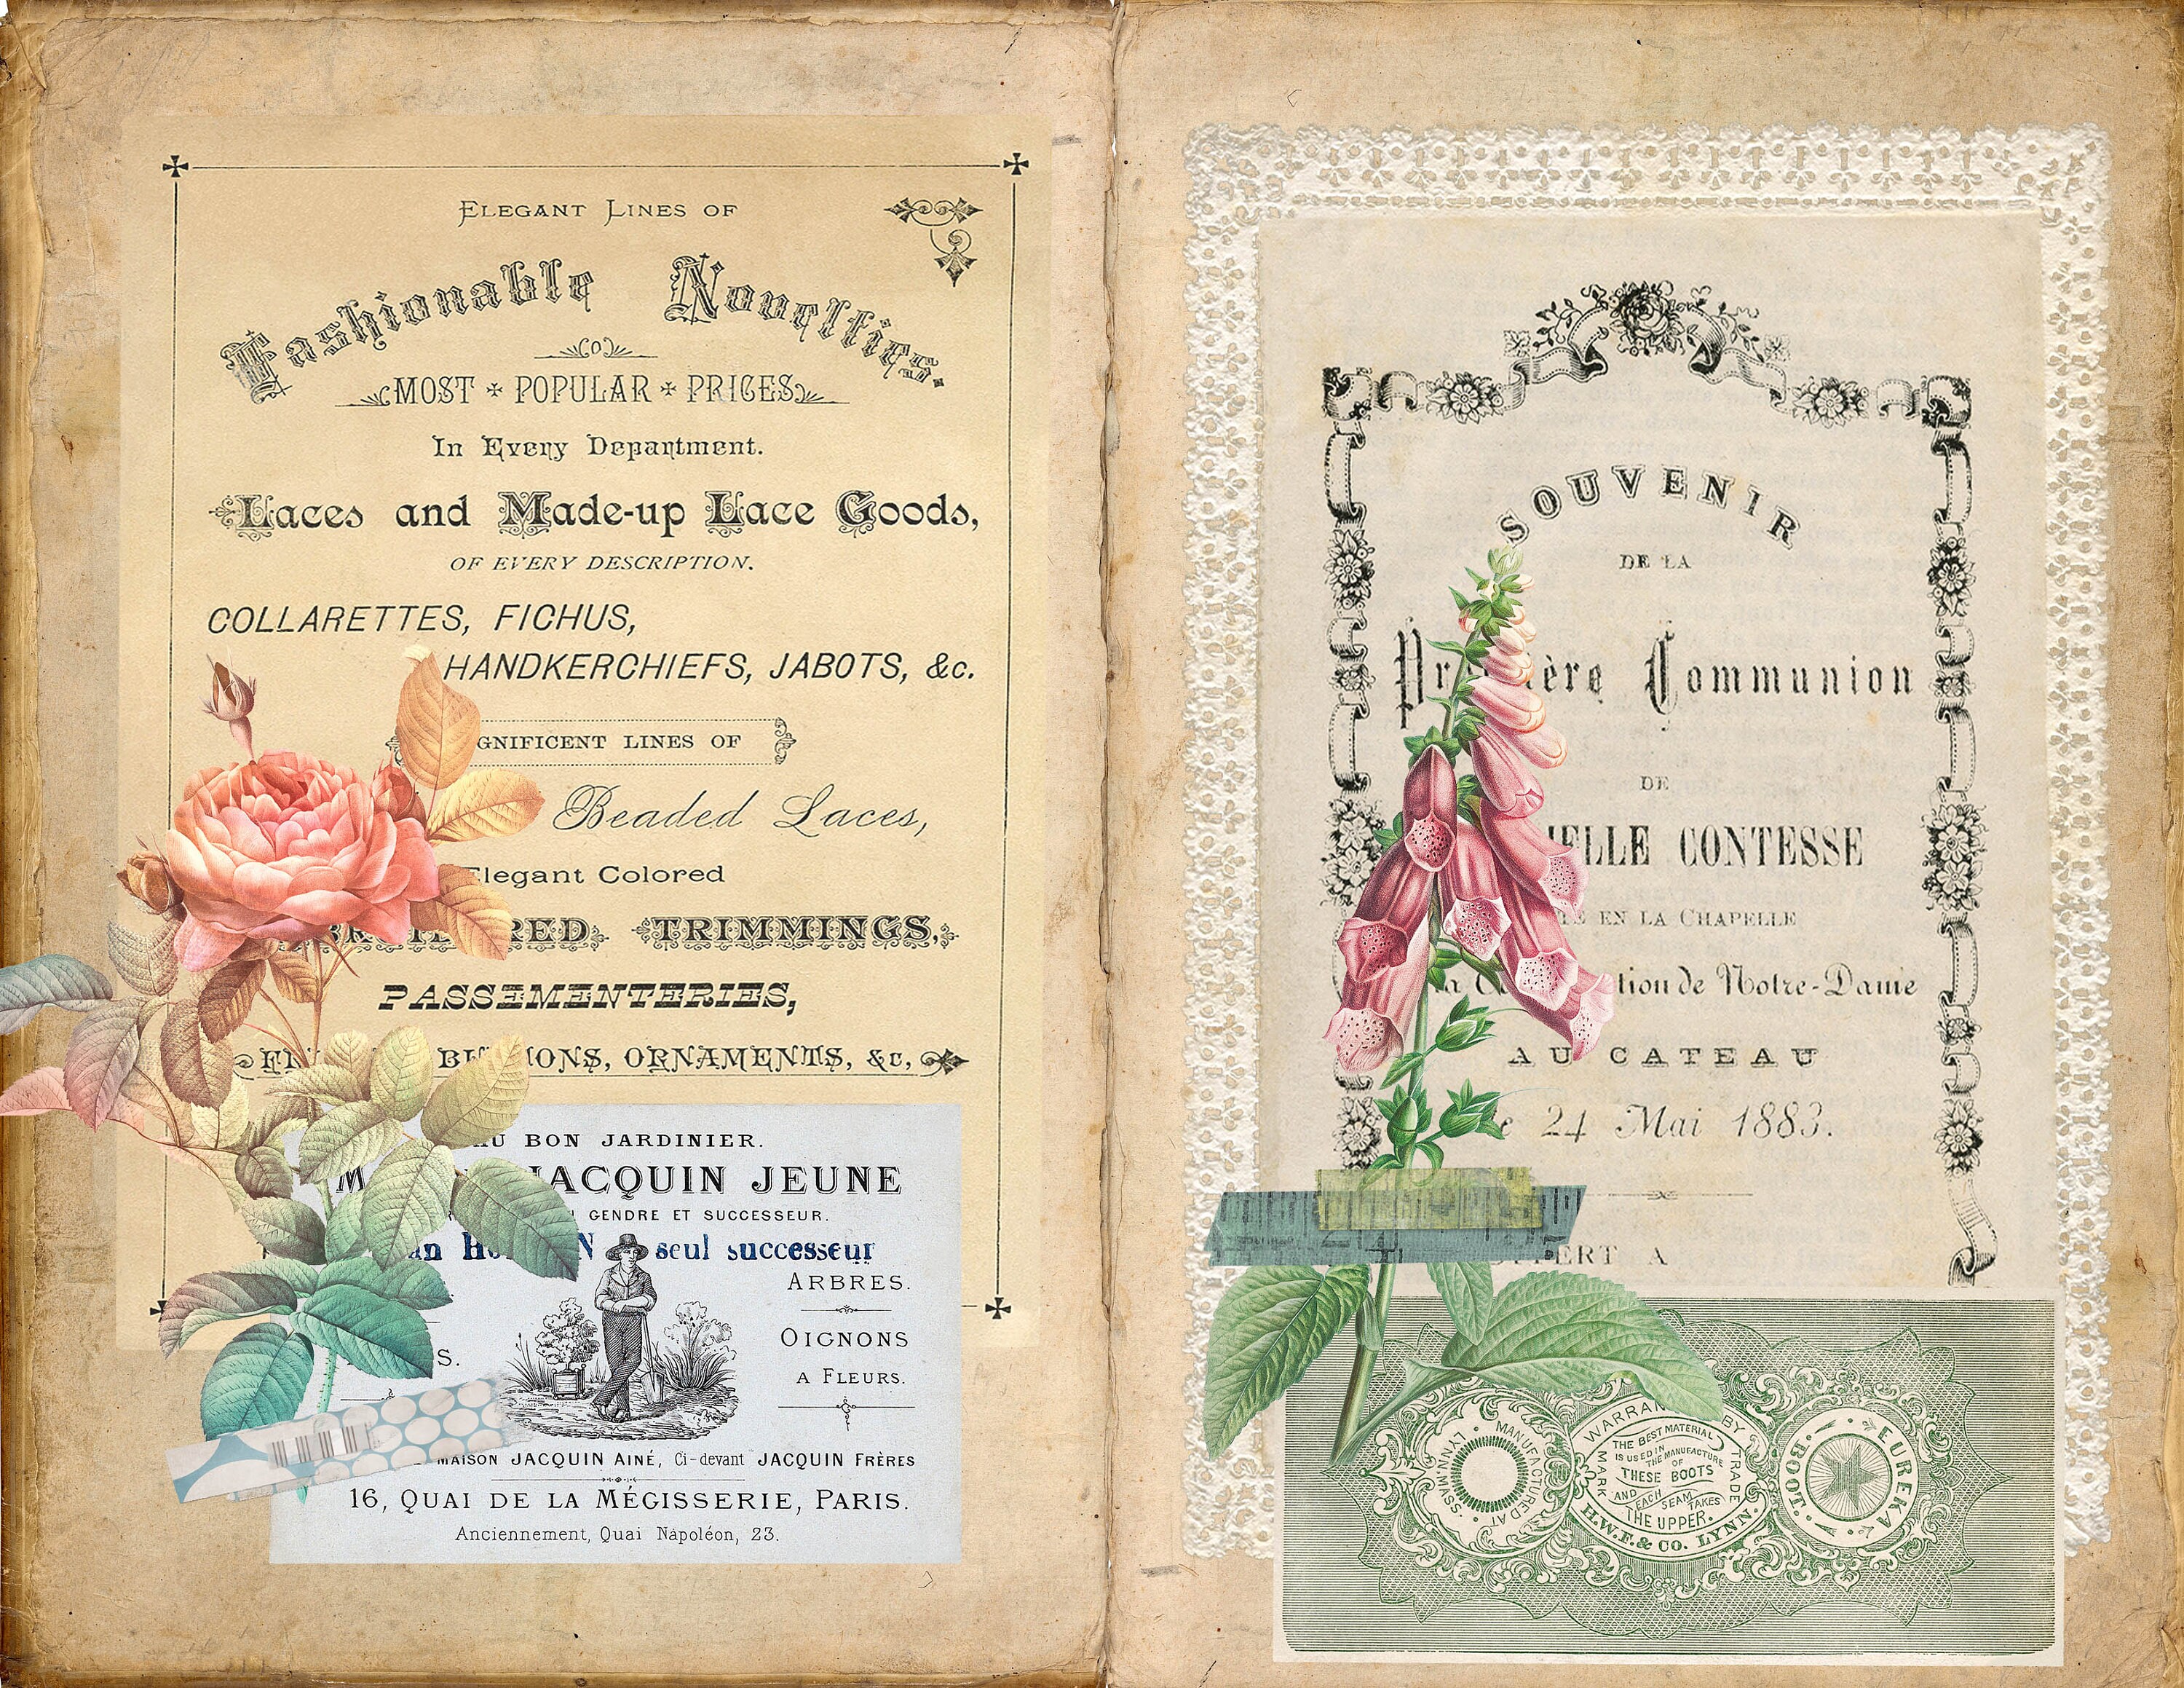 ELEGANT LINES OF
Fashionable Novelties.
MOST POPULAR PRICES
In Every Department.
Laces and Made-up Lace Goods,
OF EVERY DESCRIPTION.
COLLARETTES, FICHUS,
HANDKERCHIEFS, JABOTS, &c.
GNIFICENT LINES OF
Beaded Laces,
Elegant Colored
TRIMMINGS,
PASSEMENTERIES,
ORNAMENTS, &c,
AU BON JARDINIER.
JACQUIN JEUNE
GENDRE ET SUCCESSEUR.
seul successeur
ARBRES.
OIGNONS
A FLEURS.
MAISON JACQUIN AINÉ, Ci-devant JACQUIN FRÈRES
16, QUAI DE LA MÉGISSERIE, PARIS.
Anciennement, Quai Napoléon, 23.
SOUVENIR
DE LA
Communion
DE
ELLE CONTESSE
EN LA CHAPELLE
tion de Notre-Dame
AU CATEAU
24 Mai 1883.
A
MANUFACTURED AT
LYNN. MASS.
WARRAN BY
TRADE
MARK
THE BEST MATERIAL
IS USED IN
THE MANUFACTURE
OF
THESE BOOTS
AND
EACH SEAM TAKES
THE UPPER.
H.W.F. & CO. LYNN.
EUREKA
BOOT.